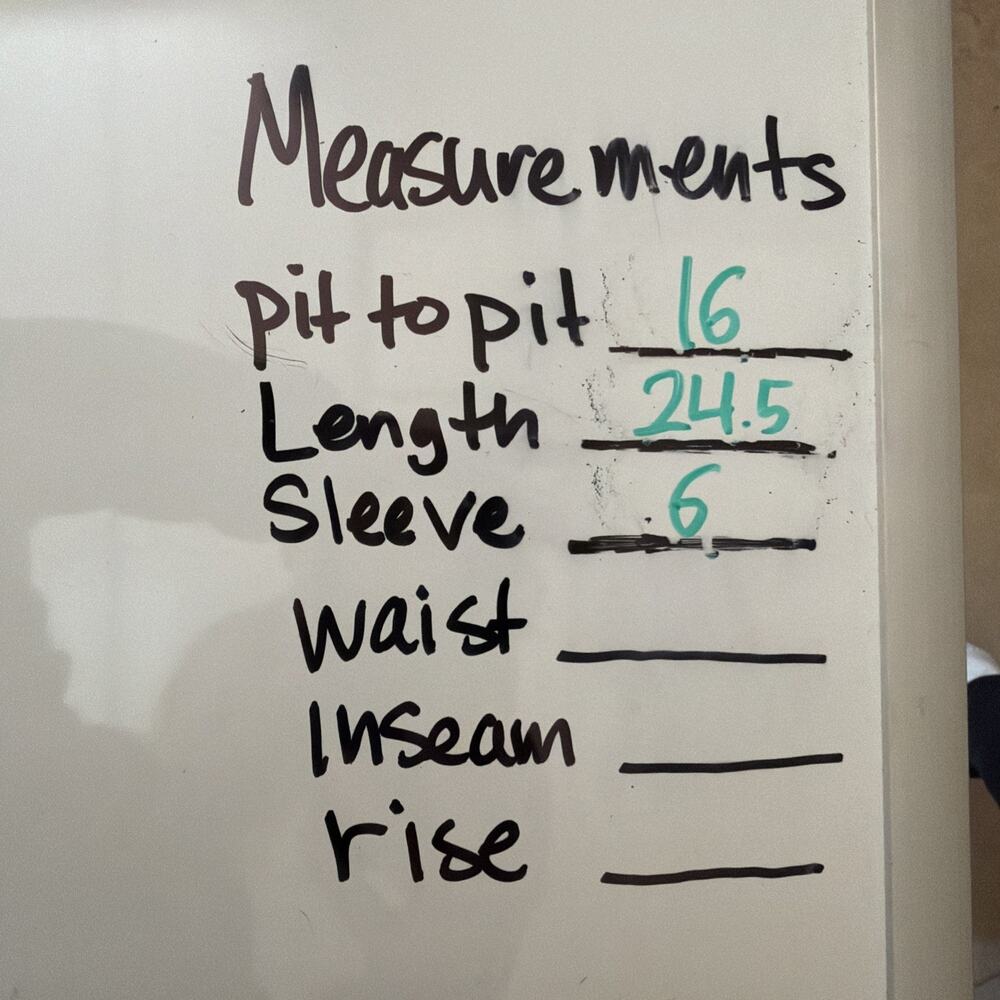 Measurements
pit to pit 16
Length 24.5
Sleeve 6
waist
Inseam
rise